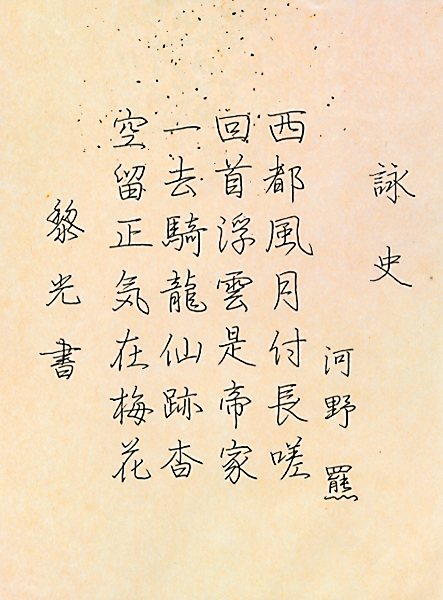 詠史
河野 羆
西都風月付長嗟
回首浮雲是帝家
一去騎龍仙跡杳
空留正気在梅花
黎光書